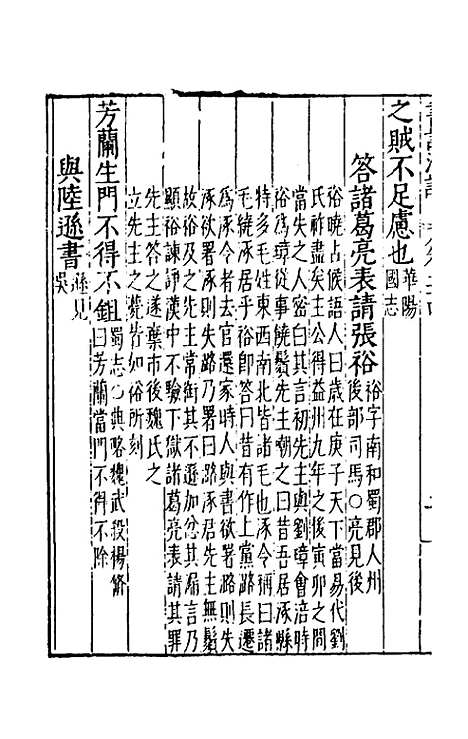 之賊不足慮也華陽國志
答諸葛亮表請張裕裕字南和蜀郡人州後部司馬○亮見後
裕曉占候語人曰歲在庚子天下當易代劉
氏祚盡矣主公得益州九年之後寅卯之間
當失之人密白其言初先主與劉璋會涪時
裕為璋從事饒鬚先主嘲之曰昔吾居涿縣
特多毛姓東西南北皆諸毛也涿令稱曰諸
毛繞涿居乎裕即答曰昔有作上黨潞長遷
為涿令者去官還家時人與書欲署潞則失
涿欲署涿則失潞乃署曰潞涿君先主無鬚
故裕及之先主常銜其不遜加忿其漏言乃
顯裕諫諍漢中不驗下獄諸葛亮表請其罪
先主答之遂棄市後魏氏之
立先主之薨皆如裕所刻
芳蘭生門不得不鉏蜀志○典略魏武投楊脩曰芳蘭當門不得不除
與陸遜書遜見吳